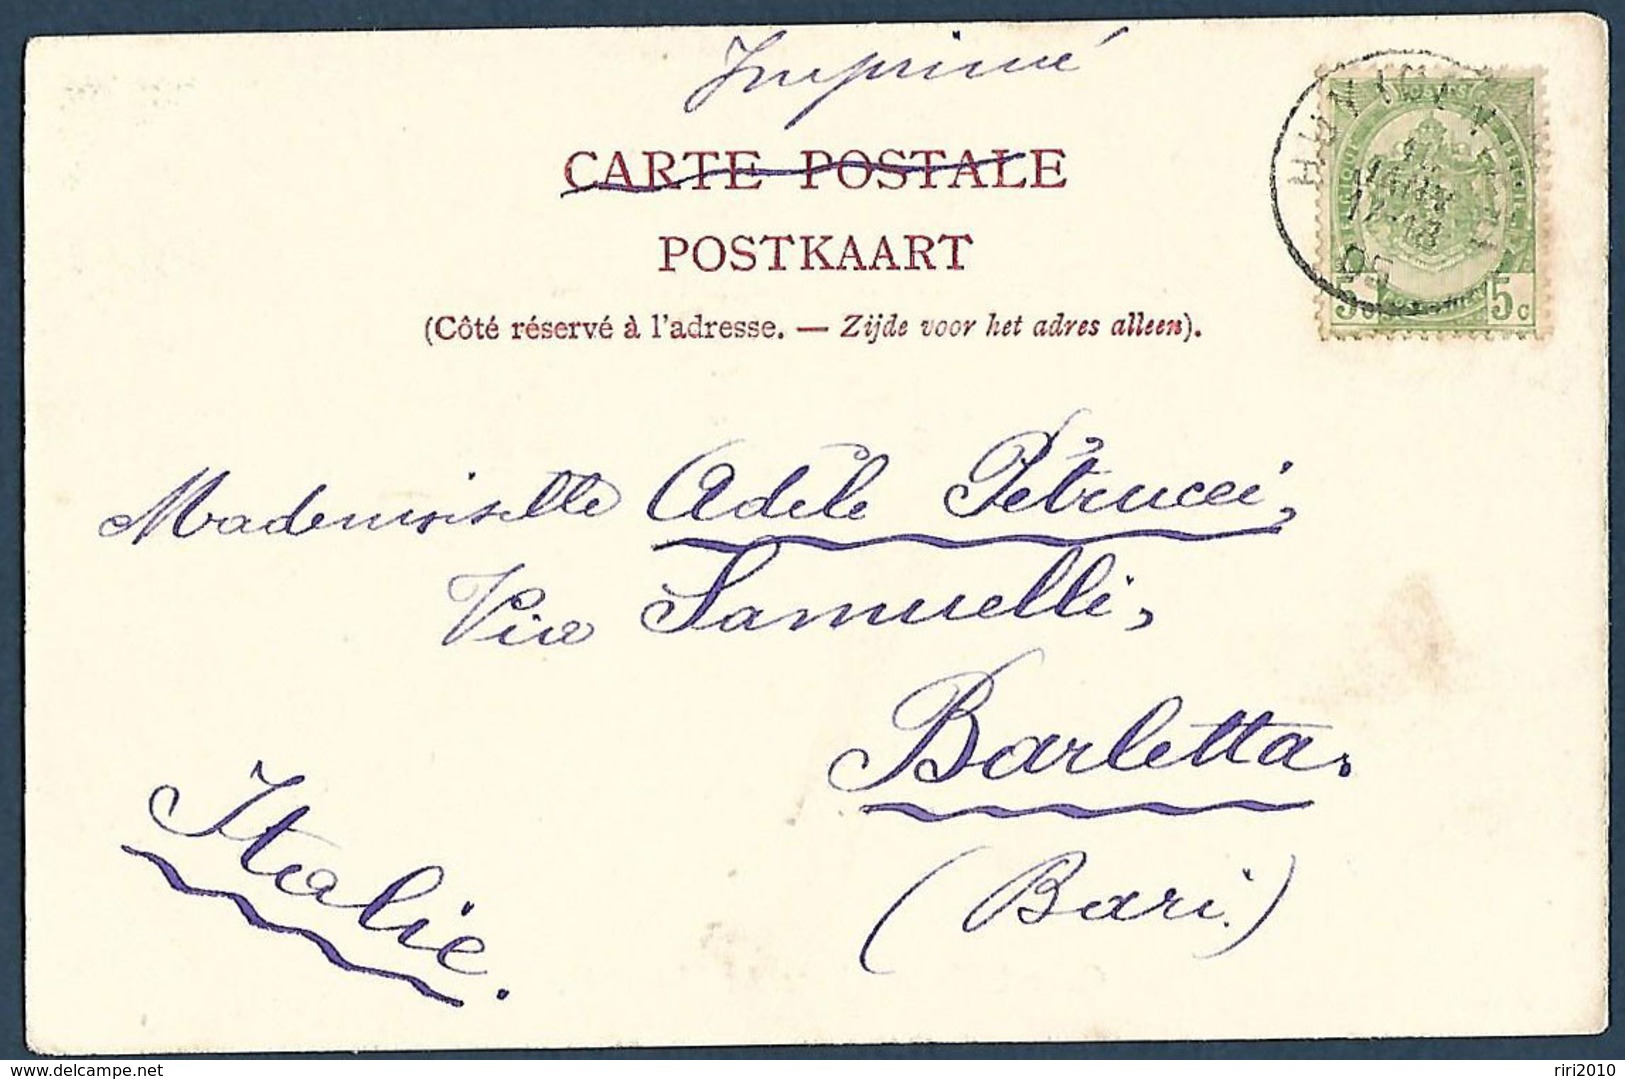 Imprimé
CARTE POSTALE
POSTKAART
(Côté réservé à l'adresse. — Zijde voor het adres alleen).
5c 5c
05
Mademoiselle Adèle Pétrucci,
Via Samuelli,
Barletta.
(Bari.)
Italie.
delcampe.net
riri2010